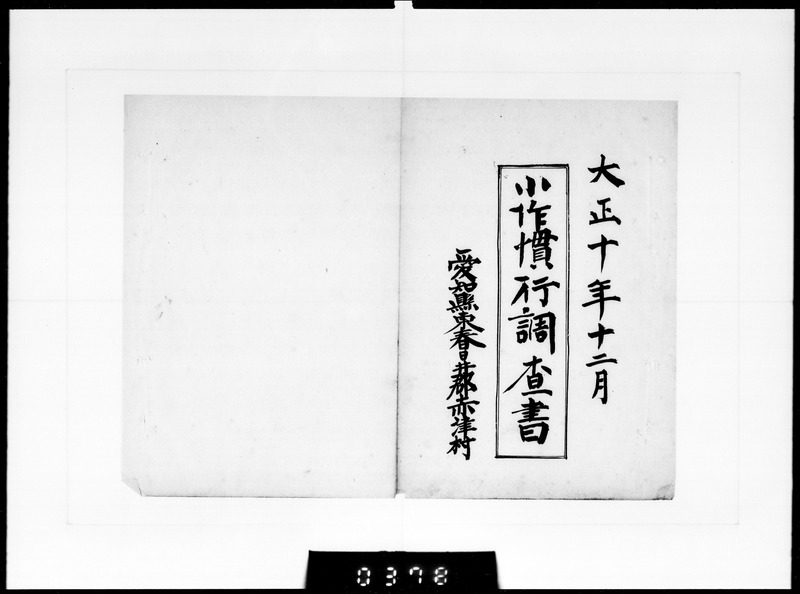 大正十年十二月
小作慣行調査書
愛知縣東春日井郡赤津村
0378